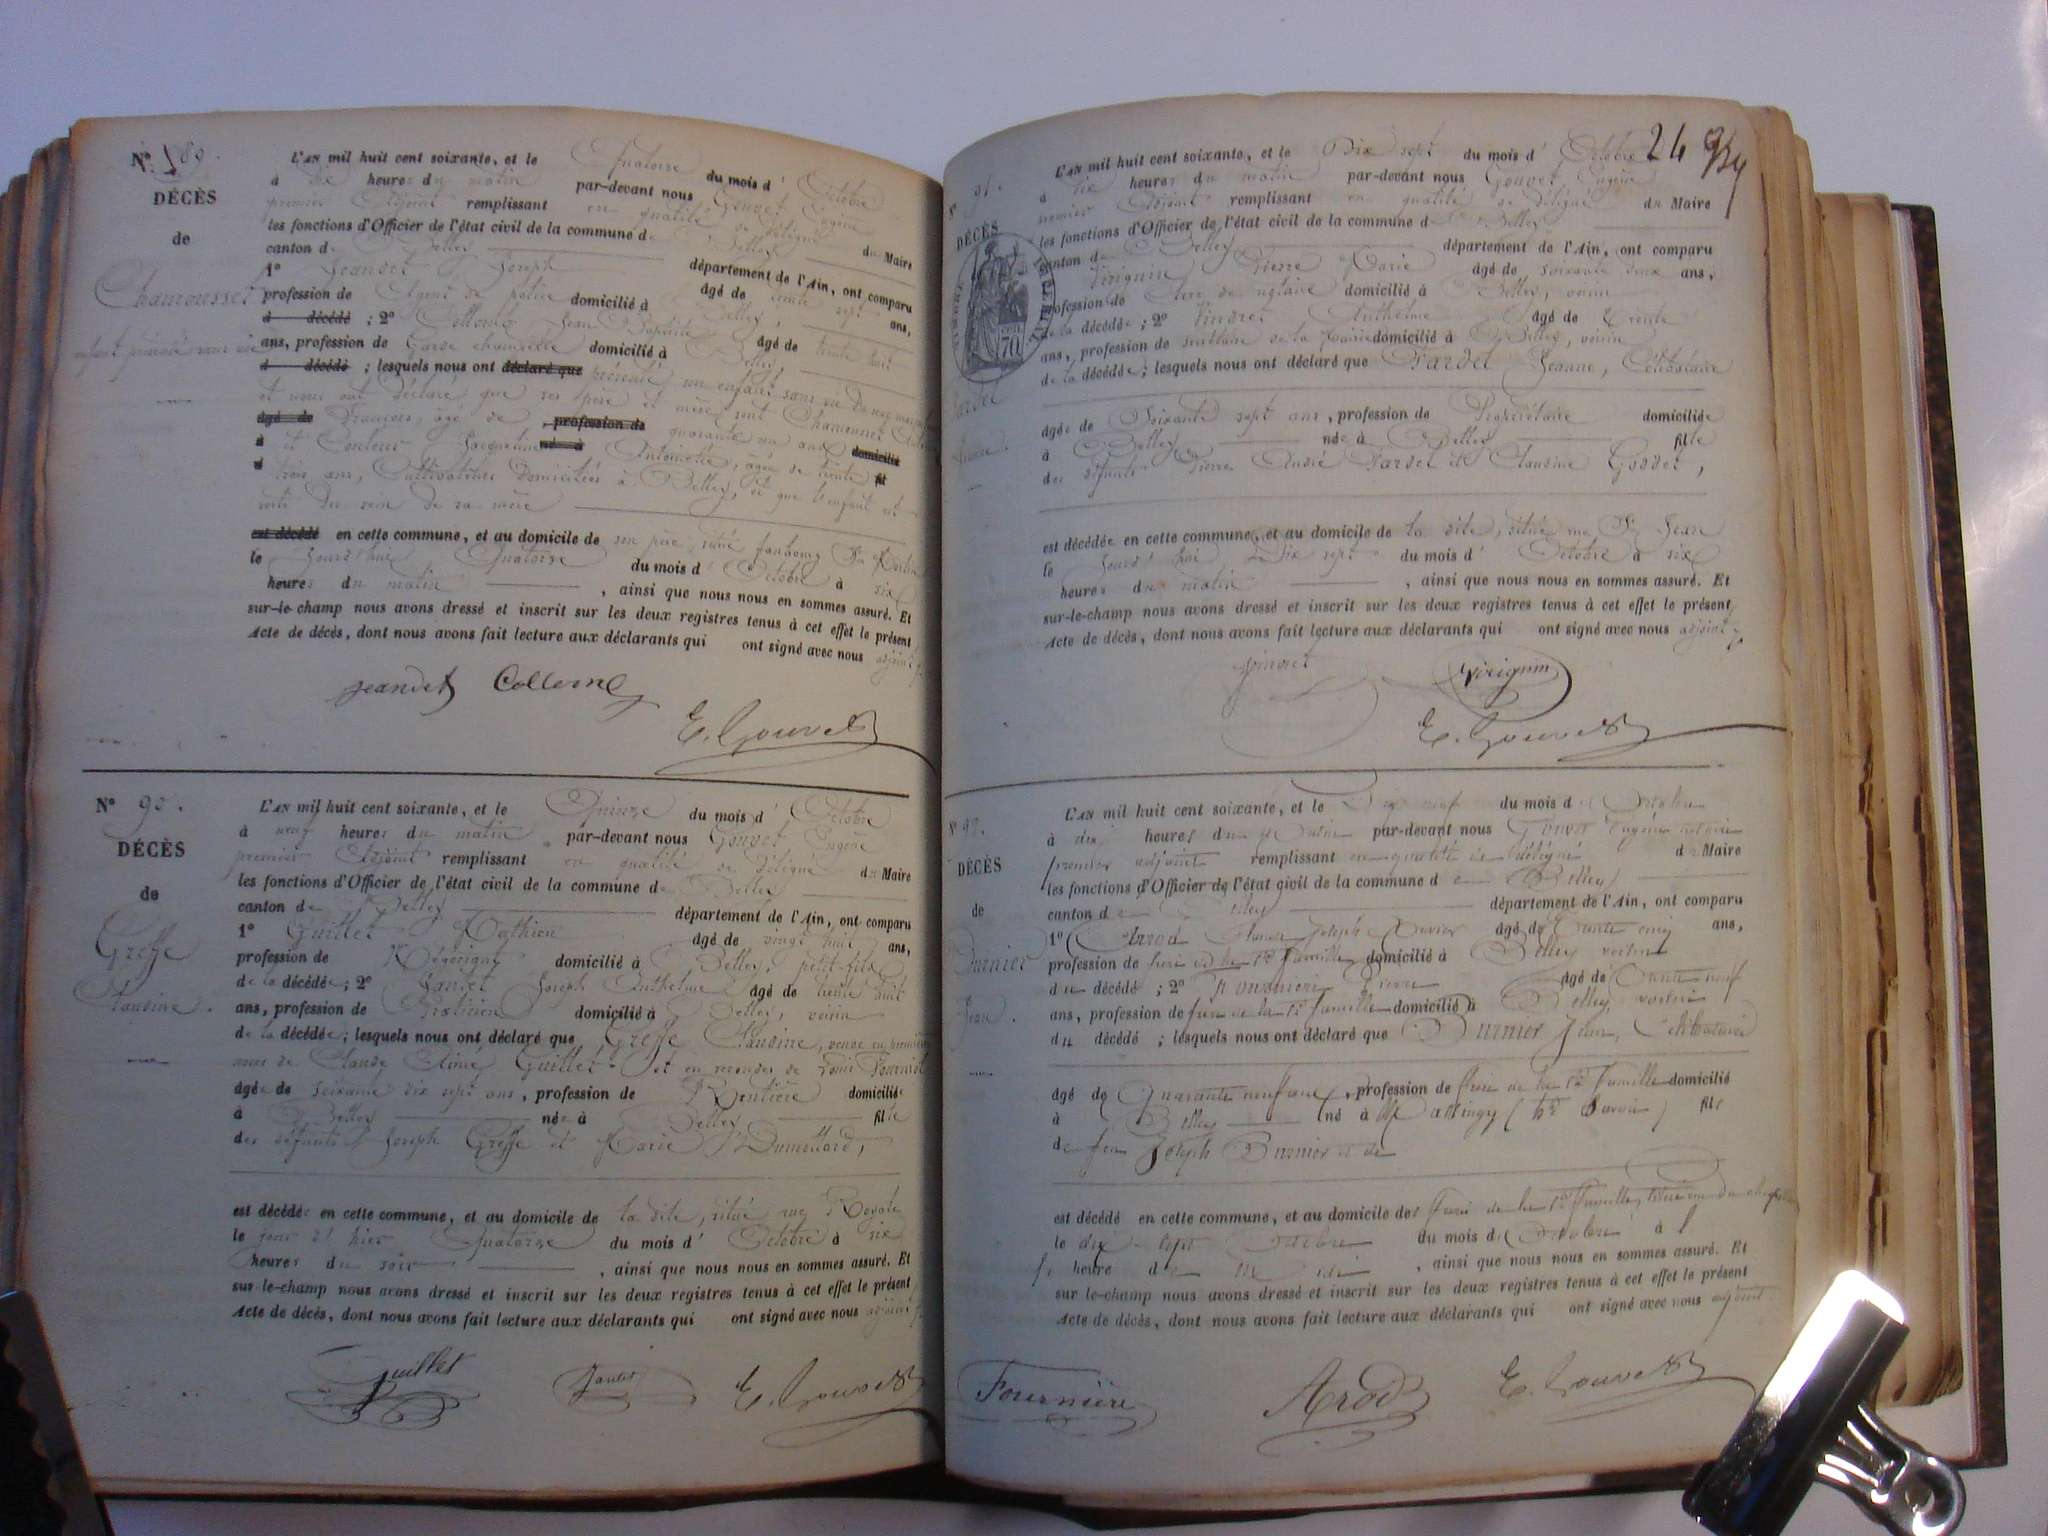 N° 89.
DÉCÈS
de
Chamousset
enfant présenté sans vie
L'AN mil huit cent soixante, et le Quatorze du mois d'Octobre
à dix heures du matin par-devant nous Gouvet Eugène
premier Adjoint remplissant en qualité de délégué du Maire
les fonctions d'Officier de l'état civil de la commune de Belley
canton de Belley département de l'Ain, ont comparu
1° Jeandet Joseph âgé de trente sept ans,
profession de Agent de police domicilié à Belley,
d décédé ; 2° Collomb Jean Baptiste âgé de trente huit
ans, profession de Garde champêtre domicilié à Belley,
d décédé ; lesquels nous ont déclaré que présenté un enfant sans vie du sexe
et nous ont déclaré que ses père et mère sont Chamousset
âgé de François, âgé de profession de quarante un ans domicilié
à et Jacqueline né à Antoinette, âgée de trente fil
d trois ans, Cultivateurs domiciliés à Belley, et que l'enfant est
sorti du sein de sa mère
est décédé en cette commune, et au domicile de son père, situé faubourg St Martin
le Jourd'hui Quatorze du mois d'Octobre à six
heures du matin, ainsi que nous nous en sommes assuré. Et
sur-le-champ nous avons dressé et inscrit sur les deux registres tenus à cet effet le présent
Acte de décès, dont nous avons fait lecture aux déclarants qui ont signé avec nous adjoint
Jeandet Collomb
E. Gouvet
N° 90.
DÉCÈS
de
Greffe
Claudine.
L'AN mil huit cent soixante, et le Quinze du mois d'Octobre
à neuf heures du matin par-devant nous Gouvet Eugène
premier Adjoint remplissant en qualité de délégué du Maire
les fonctions d'Officier de l'état civil de la commune de Belley
canton de Belley département de l'Ain, ont comparu
1° Guillet Mathieu âgé de vingt huit ans,
profession de domicilié à Belley, petit-fils
de la décédée ; 2° Jantet Joseph Anthelme âgé de trente huit
ans, profession de Praticien domicilié à Belley, voisin
de la décédée ; lesquels nous ont déclaré que Greffe Claudine, veuve en premières
noces de Claude Aimé Guillet et en secondes de Louis Fournier
âgée de soixante dix sept ans, profession de Rentière domiciliée
à Belley née à Belley fille
des défunts Joseph Greffe et Marie Dumollard,
est décédée en cette commune, et au domicile de la dite, situé rue Royale
le jour d'hier Quatorze du mois d'Octobre à six
heures du soir, ainsi que nous nous en sommes assuré. Et
sur-le-champ nous avons dressé et inscrit sur les deux registres tenus à cet effet le présent
Acte de décès, dont nous avons fait lecture aux déclarants qui ont signé avec nous adjoint
Guillet Jantet E. Gouvet
24
N° 91.
DÉCÈS
70
L'AN mil huit cent soixante, et le Dix sept du mois d'Octobre
à dix heures du matin par-devant nous Gouvet Eugène
premier Adjoint remplissant en qualité de délégué du Maire
les fonctions d'Officier de l'état civil de la commune de Belley
canton de Belley département de l'Ain, ont comparu
Virignin Pierre Marie âgé de soixante deux ans,
profession de clerc de notaire domicilié à Belley, voisin
de la décédée ; 2° Vindret Anthelme âgé de trente
ans, profession de secrétaire de la Mairie domicilié à Belley, voisin
de la décédée ; lesquels nous ont déclaré que Fardel Jeanne, Célibataire
âgée de Soixante sept ans, profession de Propriétaire domiciliée
à Belley née à Belley fille
des défunts Pierre André Fardel et Claudine Goddet,
est décédée en cette commune, et au domicile de la dite, situé rue St Jean
le Jourd'hui Dix sept du mois d'Octobre à six
heures du matin, ainsi que nous nous en sommes assuré. Et
sur-le-champ nous avons dressé et inscrit sur les deux registres tenus à cet effet le présent
Acte de décès, dont nous avons fait lecture aux déclarants qui ont signé avec nous adjoint
Vindret Virignin
E. Gouvet
N° 92.
DÉCÈS
de
Burnier
Jean.
L'AN mil huit cent soixante, et le Dix neuf du mois d'Octobre
à dix heures du Matin par-devant nous Gouvet Eugène notaire
premier adjoint remplissant en qualité de délégué du Maire
les fonctions d'Officier de l'état civil de la commune de Belley
canton de Belley département de l'Ain, ont comparu
1° Arrod Joseph Xavier âgé de trente cinq ans,
profession de frère de la Ste famille domicilié à Belley voisin
du décédé ; 2° Fournière Pierre âgé de trente neuf
ans, profession de frère de la Ste famille domicilié à Belley, voisin
du décédé ; lesquels nous ont déclaré que Burnier Jean, Célibataire
âgé de Quarante neuf ans, profession de frère de la Ste famille domicilié
à Belley né à Massingy (hte Savoie) fils
de feu Joseph Burnier et de
est décédé en cette commune, et au domicile des frères de la Ste famille, situé rue du chapitre
le dix sept Octobre du mois d'Octobre à 1
heure de Midi, ainsi que nous nous en sommes assuré. Et
sur-le-champ nous avons dressé et inscrit sur les deux registres tenus à cet effet le présent
Acte de décès, dont nous avons fait lecture aux déclarants qui ont signé avec nous adjoint.
Fournière Arod E. Gouvet